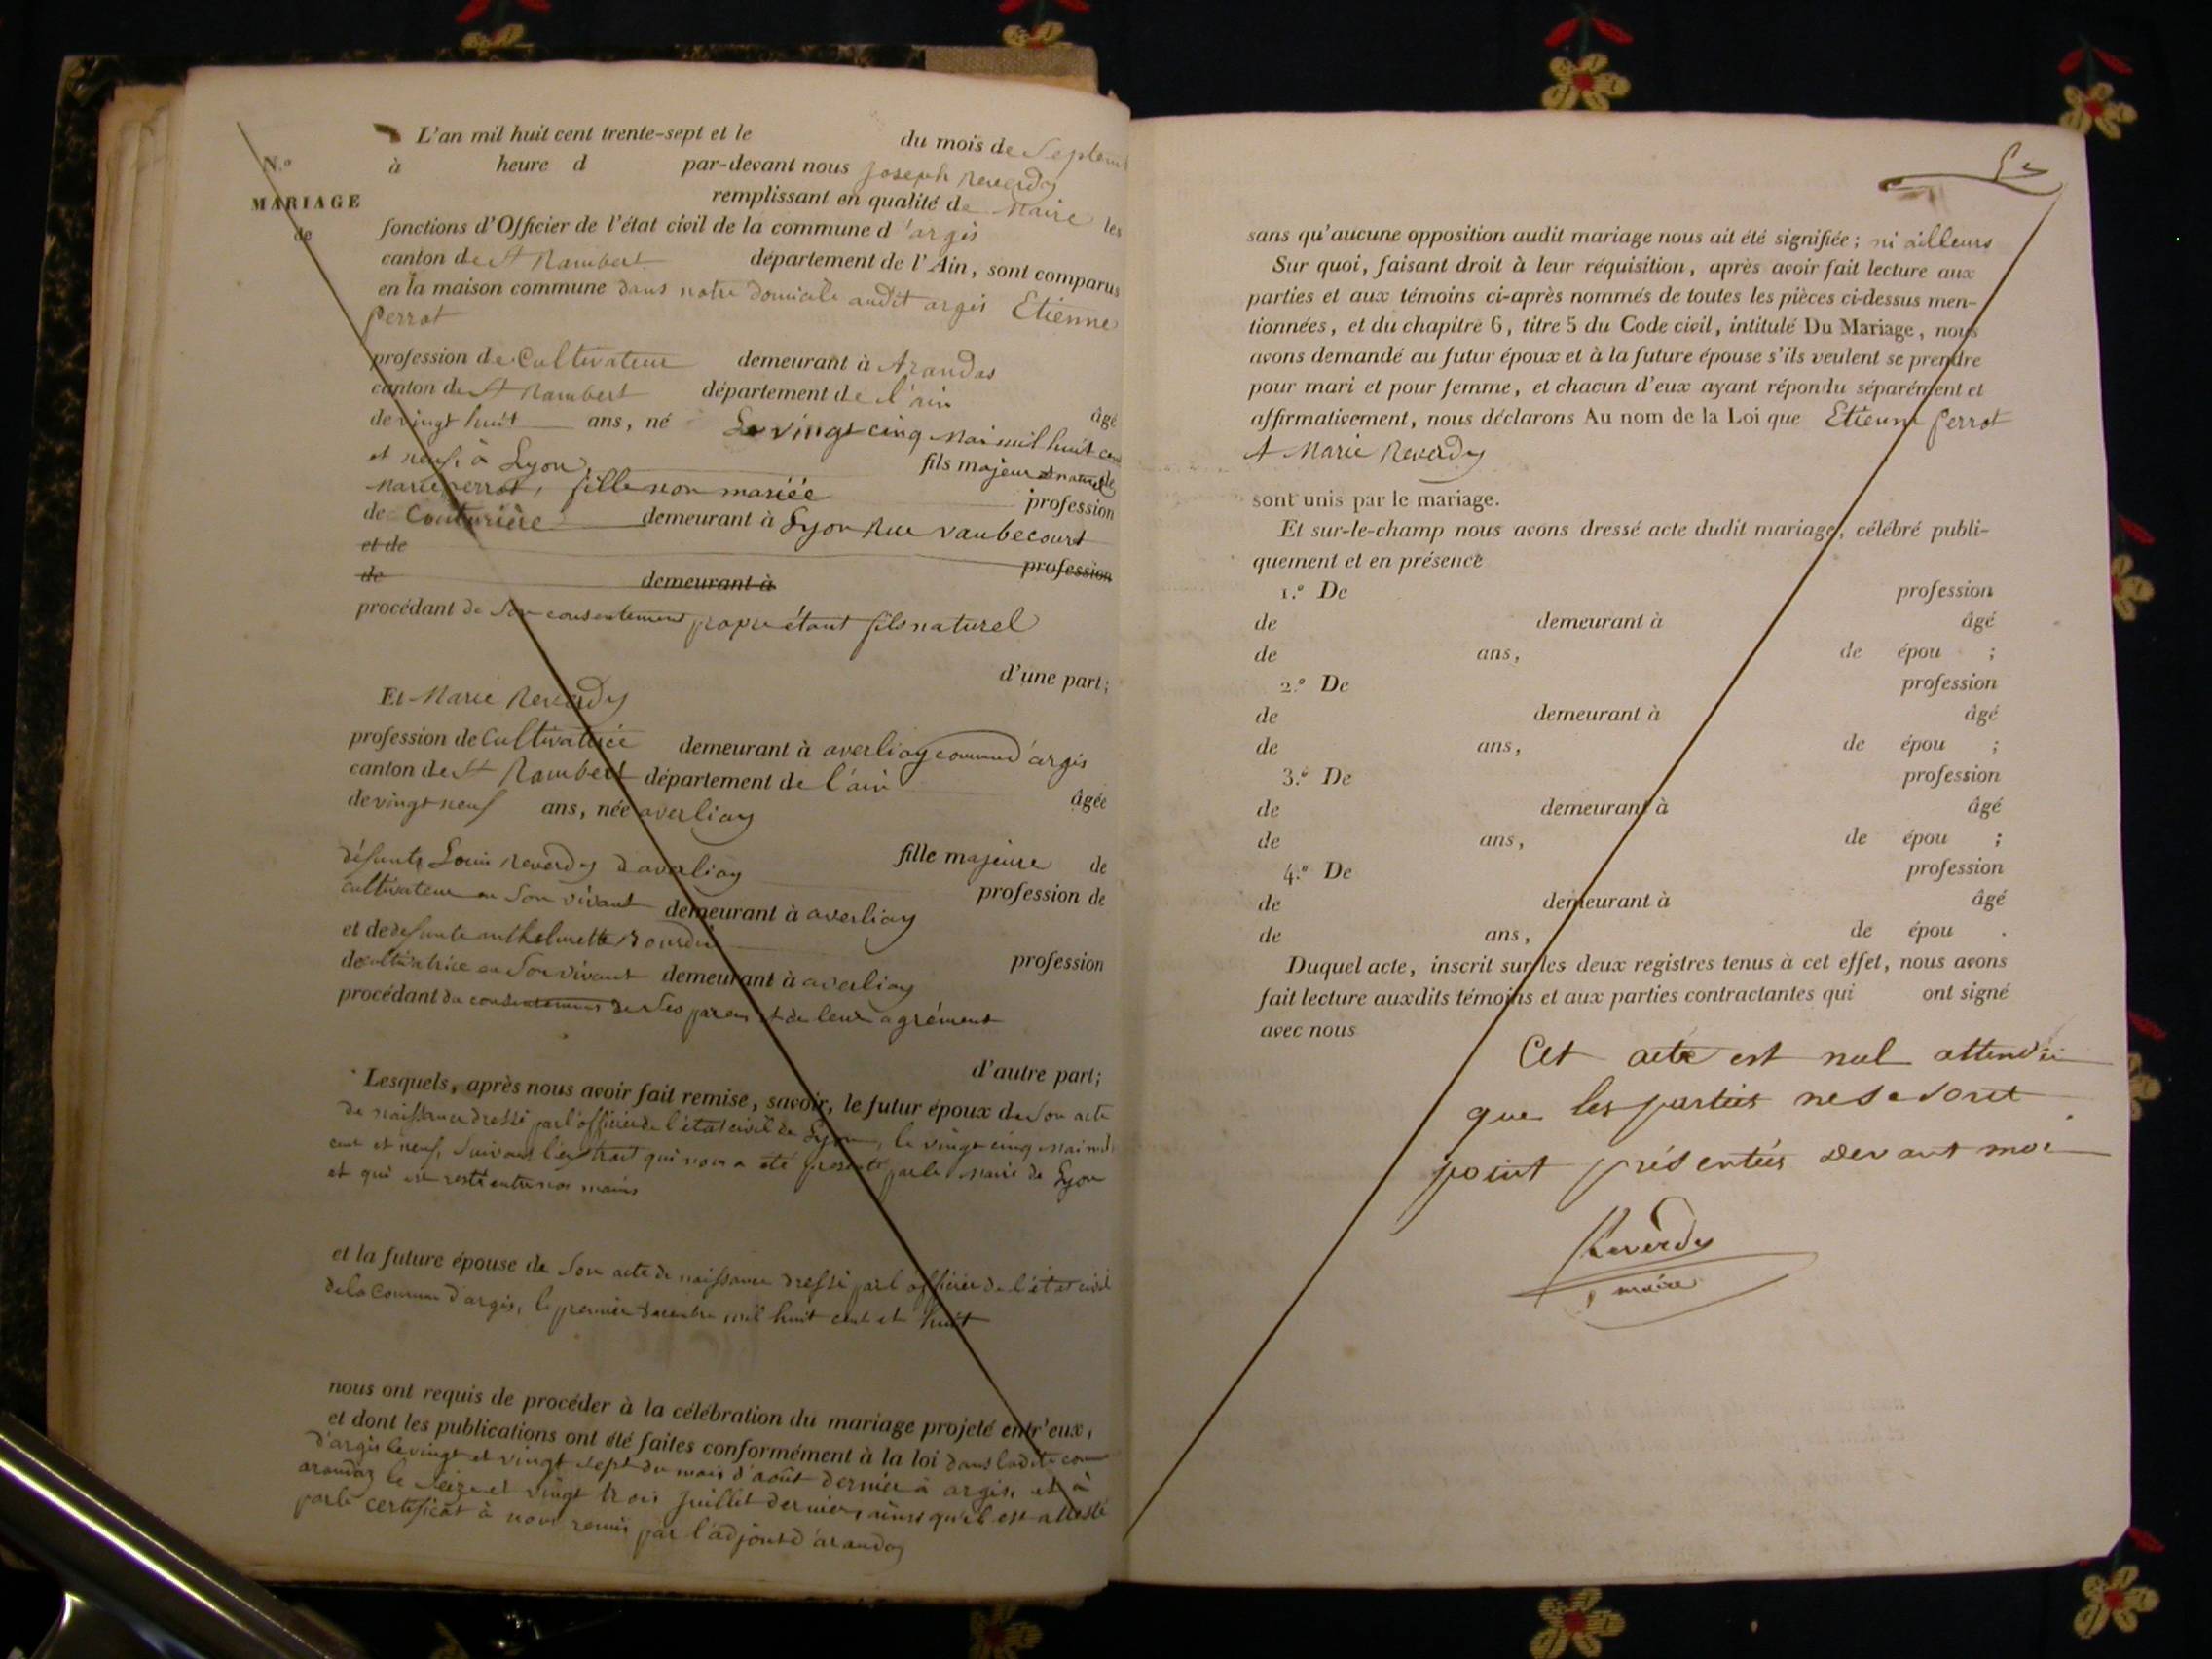 N.º
MARIAGE
de
L'an mil huit cent trente-sept et le du mois de Septem
à heure d par-devant nous joseph Reverdy
remplissant en qualité de Maire les
fonctions d'Officier de l'état civil de la commune d'argis
canton de St Rambert département de l'Ain, sont comparus
en la maison commune dans notre domicile audit argis Etienne
perrot
profession de Cultivateur demeurant à Arandas
canton de St Rambert département de l'ain âgé
de vingt huit ans, né Le vingt cinq Mai mil huit ce
et neuf, à Lyon, fils majeur et naturel de
Marie perrot, fille non mariée profession
de Couturière demeurant à Lyon Rue vaubecourt
et de profession
de demeurant à
procédant de Son consentement propre étant fils naturel
d'une part;
Et Marie Reverdy
profession de Cultivatrice demeurant à averliay commune d'argis
canton de St Rambert département de l'ain âgée
de vingt neuf ans, née averliay
fille majeure de
défunts Louis Reverdy d'averliay profession de
cultivateur en Son vivant demeurant à averliay
et de defunte anthelmette Bourdin profession
de cultivatrice en Son vivant demeurant à averliay
procédant du consentement de Ses parens et de leur agrément
d'autre part;
Lesquels, après nous avoir fait remise, savoir, le futur époux de Son acte
de naissance dressé par l'officier de l'état civil de Lyon, le vingt cinq Mai mil
cent et neuf, Suivant l'extrait qui nous a été presenté par le Maire de Lyon
et qui est resté entre nos mains
et la future épouse de Son acte de naissance dressé par l'officier de l'état civil
de la Commune d'argis, le premier decembre mil huit cent et huit
nous ont requis de procéder à la célébration du mariage projeté entr'eux,
et dont les publications ont été faites conformément à la loi dans ladite com
d'argis le vingt et vingt sept du mois d'août dernier à argis, et à
arandas le seize et vingt trois juillet dernier, ainsi qu'il est attesté
par le certificat à nous remis par l'adjoint d'arandas
sans qu'aucune opposition audit mariage nous ait été signifiée; ni ailleurs
Sur quoi, faisant droit à leur réquisition, après avoir fait lecture aux
parties et aux témoins ci-après nommés de toutes les pièces ci-dessus men-
tionnées, et du chapitre 6, titre 5 du Code civil, intitulé Du Mariage, nous
avons demandé au futur époux et à la future épouse s'ils veulent se prendre
pour mari et pour femme, et chacun d'eux ayant répondu séparément et
affirmativement, nous déclarons Au nom de la Loi que Etienne perrot
& Marie Reverdy
sont unis par le mariage.
Et sur-le-champ nous avons dressé acte dudit mariage, célébré publi-
quement et en présence
1.º De profession
de demeurant à âgé
de ans, de épou ;
2.º De profession
de demeurant à âgé
de ans, de épou ;
3.º De profession
de demeurant à âgé
de ans, de épou ;
4.º De profession
de demeurant à âgé
de ans, de épou .
Duquel acte, inscrit sur les deux registres tenus à cet effet, nous avons
fait lecture auxdits témoins et aux parties contractantes qui ont signé
avec nous
Cet acte est nul attendu
que les parties ne se sont
point présentées devant moi
Reverdy
maire